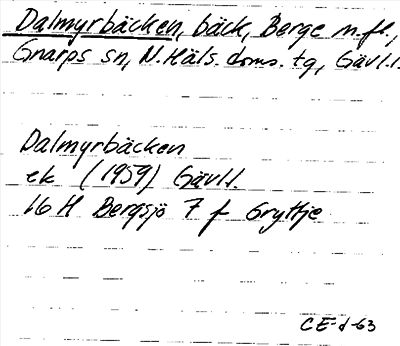 Dalmyrbäcken, bäck, Berge m.fl.,
Gnarps sn, N. Häls. doms. tg, Gävl.l.
Dalmyrbäcken
ek (1959) Gävl.l.
16 H Bergsjö 7 f Gryttje
CE-d-63